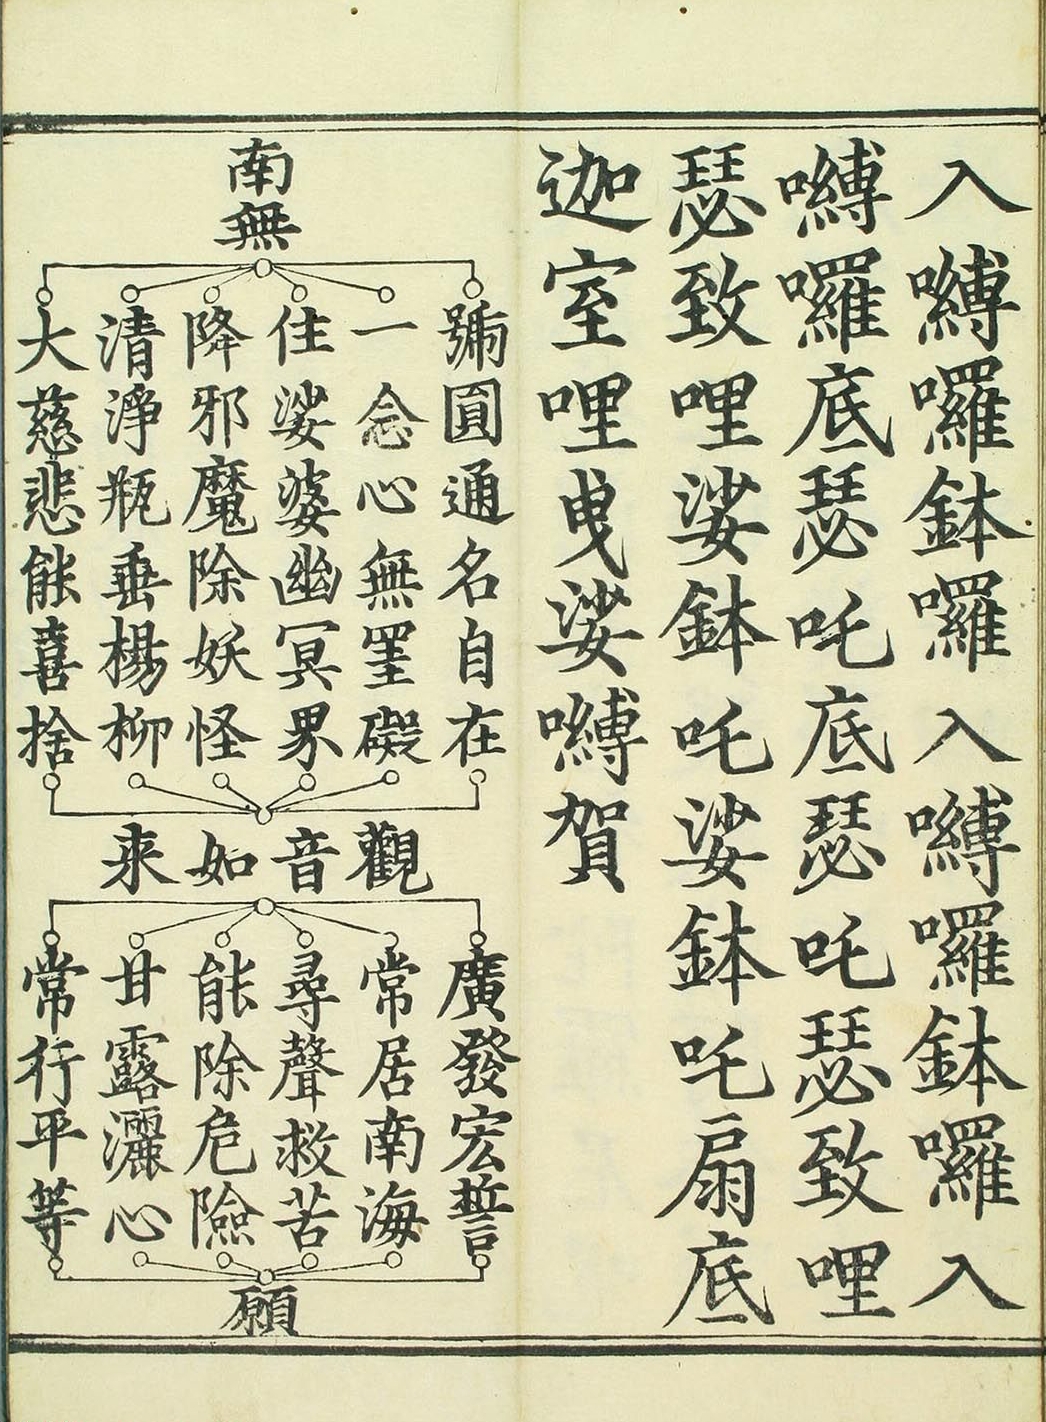 入嚩囉鉢囉入嚩囉鉢囉入
嚩囉底瑟吒底瑟吒瑟致哩
瑟致哩娑鉢吒娑鉢吒扇底
迦室哩曳娑嚩賀
南無
號圓通名自在
一念心無罣礙
住娑婆幽冥界
降邪魔除妖怪
清淨瓶垂楊柳
大慈悲能喜捨
觀音如来
廣發宏誓
常居南海
尋聲救苦
能除危險
甘露灑心
常行平等
願